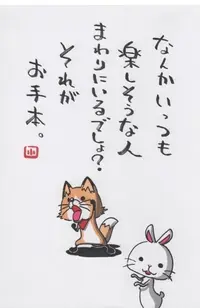 なんかいつも
楽しそうな人
まわりにいるでしょ?
それが
お手本。